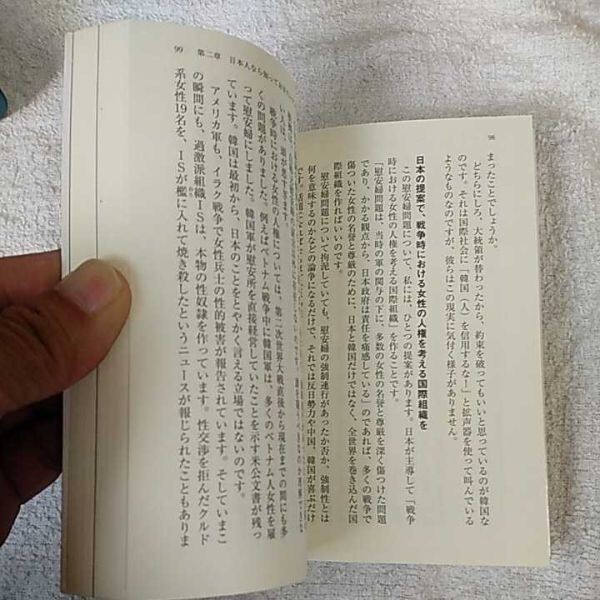 98
まったことでしょうか。
どちらにしろ、大統領が替わったから、約束を破ってもいいと思っているのが韓国な
のです。それは国際社会に「韓国(人)を信用するな!」と拡声器を使って叫んでいる
ようなものなのですが、彼らはこの現実に気付く様子がありません。
日本の提案で、戦争時における女性の人権を考える国際組織を
この慰安婦問題について、私には、ひとつの提案があります。日本が主導して「戦争
時における女性の人権を考える国際組織」を作ることです。
「慰安婦問題は、当時の軍の関与の下に、多数の女性の名誉と尊厳を深く傷つけた問題
であり、かかる観点から、日本政府は責任を痛感している」のであれば、多くの戦争で
傷ついた女性の名誉と尊厳のために、日本と韓国だけではなく、全世界を巻き込んだ国
際組織を作ればいいのです。
慰安婦問題について拘泥していても、慰安婦の強制連行があったか否か、強制性とは
何を意味するのかなどの論争になるだけで、それでは反日勢力や中国、韓国が喜ぶだけ
です。
99 第二章 日本人なら知って
戦争時における女性の人権については、第二次世界大戦直後から現在までの間にも多
くの問題がありました。例えばベトナム戦争中に韓国軍は、多くのベトナム人女性を雇
って慰安婦にしました。韓国軍が慰安所を直接経営していたことを示す米公文書が残っ
ています。韓国は最初から、日本のことをとやかく言える立場ではないのです。
アメリカ軍も、イラク戦争で女性兵士の性的被害が報告されています。そしていまこ
の瞬間にも、過激派組織ISは、本物の性奴隷を作っています。性交渉を拒んだクルド
系女性19名を、ISが檻に入れて焼き殺したというニュースが報じられたこともありま